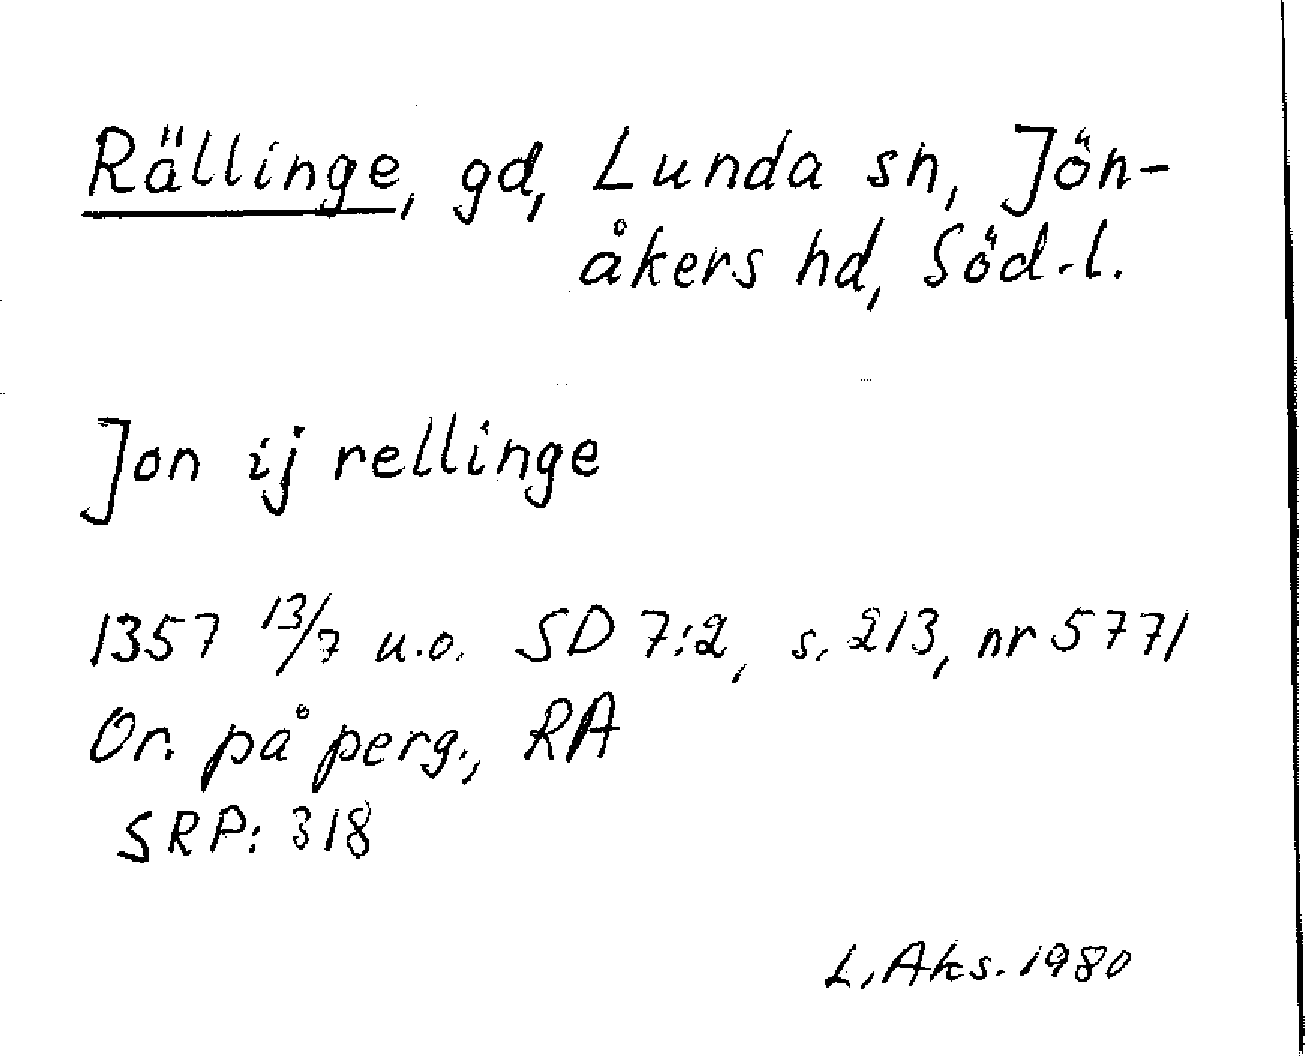 Rällinge, gd, Lunda sn, Jön-
åkers hd, Söd-l.
Jon ij rellinge
1357 13/7 u.o. SD 7:2, s. 213, nr 5771
Or. på perg., RA
SRP: 318
L. Aks. 1980